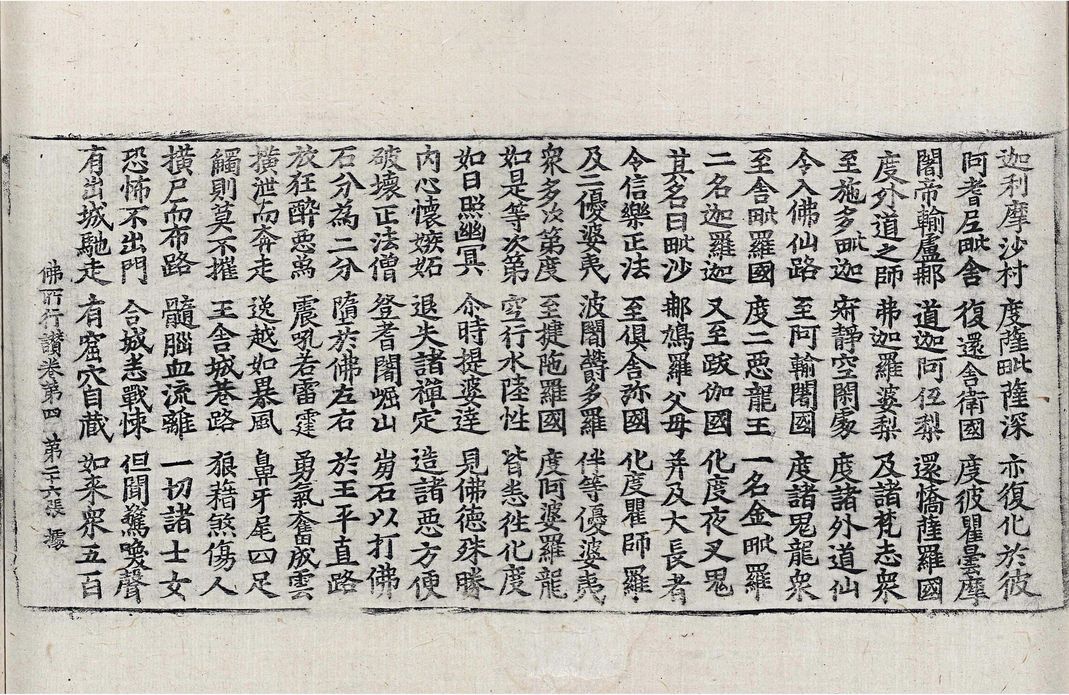 迦利摩沙村 度薩毗薩深 亦復化於彼
阿耆尼毗舍 復還舍衛國 度彼瞿曇摩
闍帝輸盧那 道迦阿伍梨 還憍薩羅國
度外道之師 弗迦羅婆梨 及諸梵志衆
至施多毗迦 寂靜空閑處 度諸外道仙
令入佛仙路 至阿輸闍國 度諸鬼龍衆
至舍毗羅國 度二惡龍王 一名金毗羅
二名迦羅迦 又至跋伽國 化度夜叉鬼
其名曰毗沙 那鳩羅父母 并及大長者
令信樂正法 至俱舍弥國 化度瞿師羅
及二優婆夷 波闍欝多羅 伴等優婆夷
衆多次第度 至揵陁羅國 度阿婆羅龍
如是等次第 空行水陸性 皆悉往化度
如日照幽冥 尒時提婆達 見佛德殊勝
内心懷嫉妬 退失諸禪定 造諸惡方便
破壞正法僧 登耆闍崛山 崩石以打佛
石分為二分 墮於佛左右 於王平直路
放狂醉惡為 震吼若雷霆 勇氣奮成雲
撗泄而奔走 逸越如暴風 鼻牙尾四足
觸則莫不摧 王舍城巷路 狼藉煞傷人
撗尸而布路 髓腦血流離 一切諸士女
恐怖不出門 合城悉戰悚 但聞驚喚聲
有出城馳走 有窟穴自藏 如来衆五百
佛所行讃卷第四 第二十六張